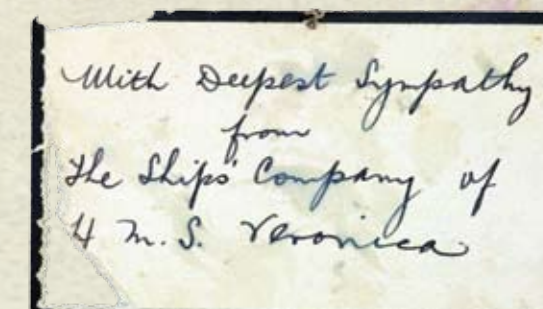 With Deepest Sympathy
from
The Ships' Company of
H M. S. Veronica